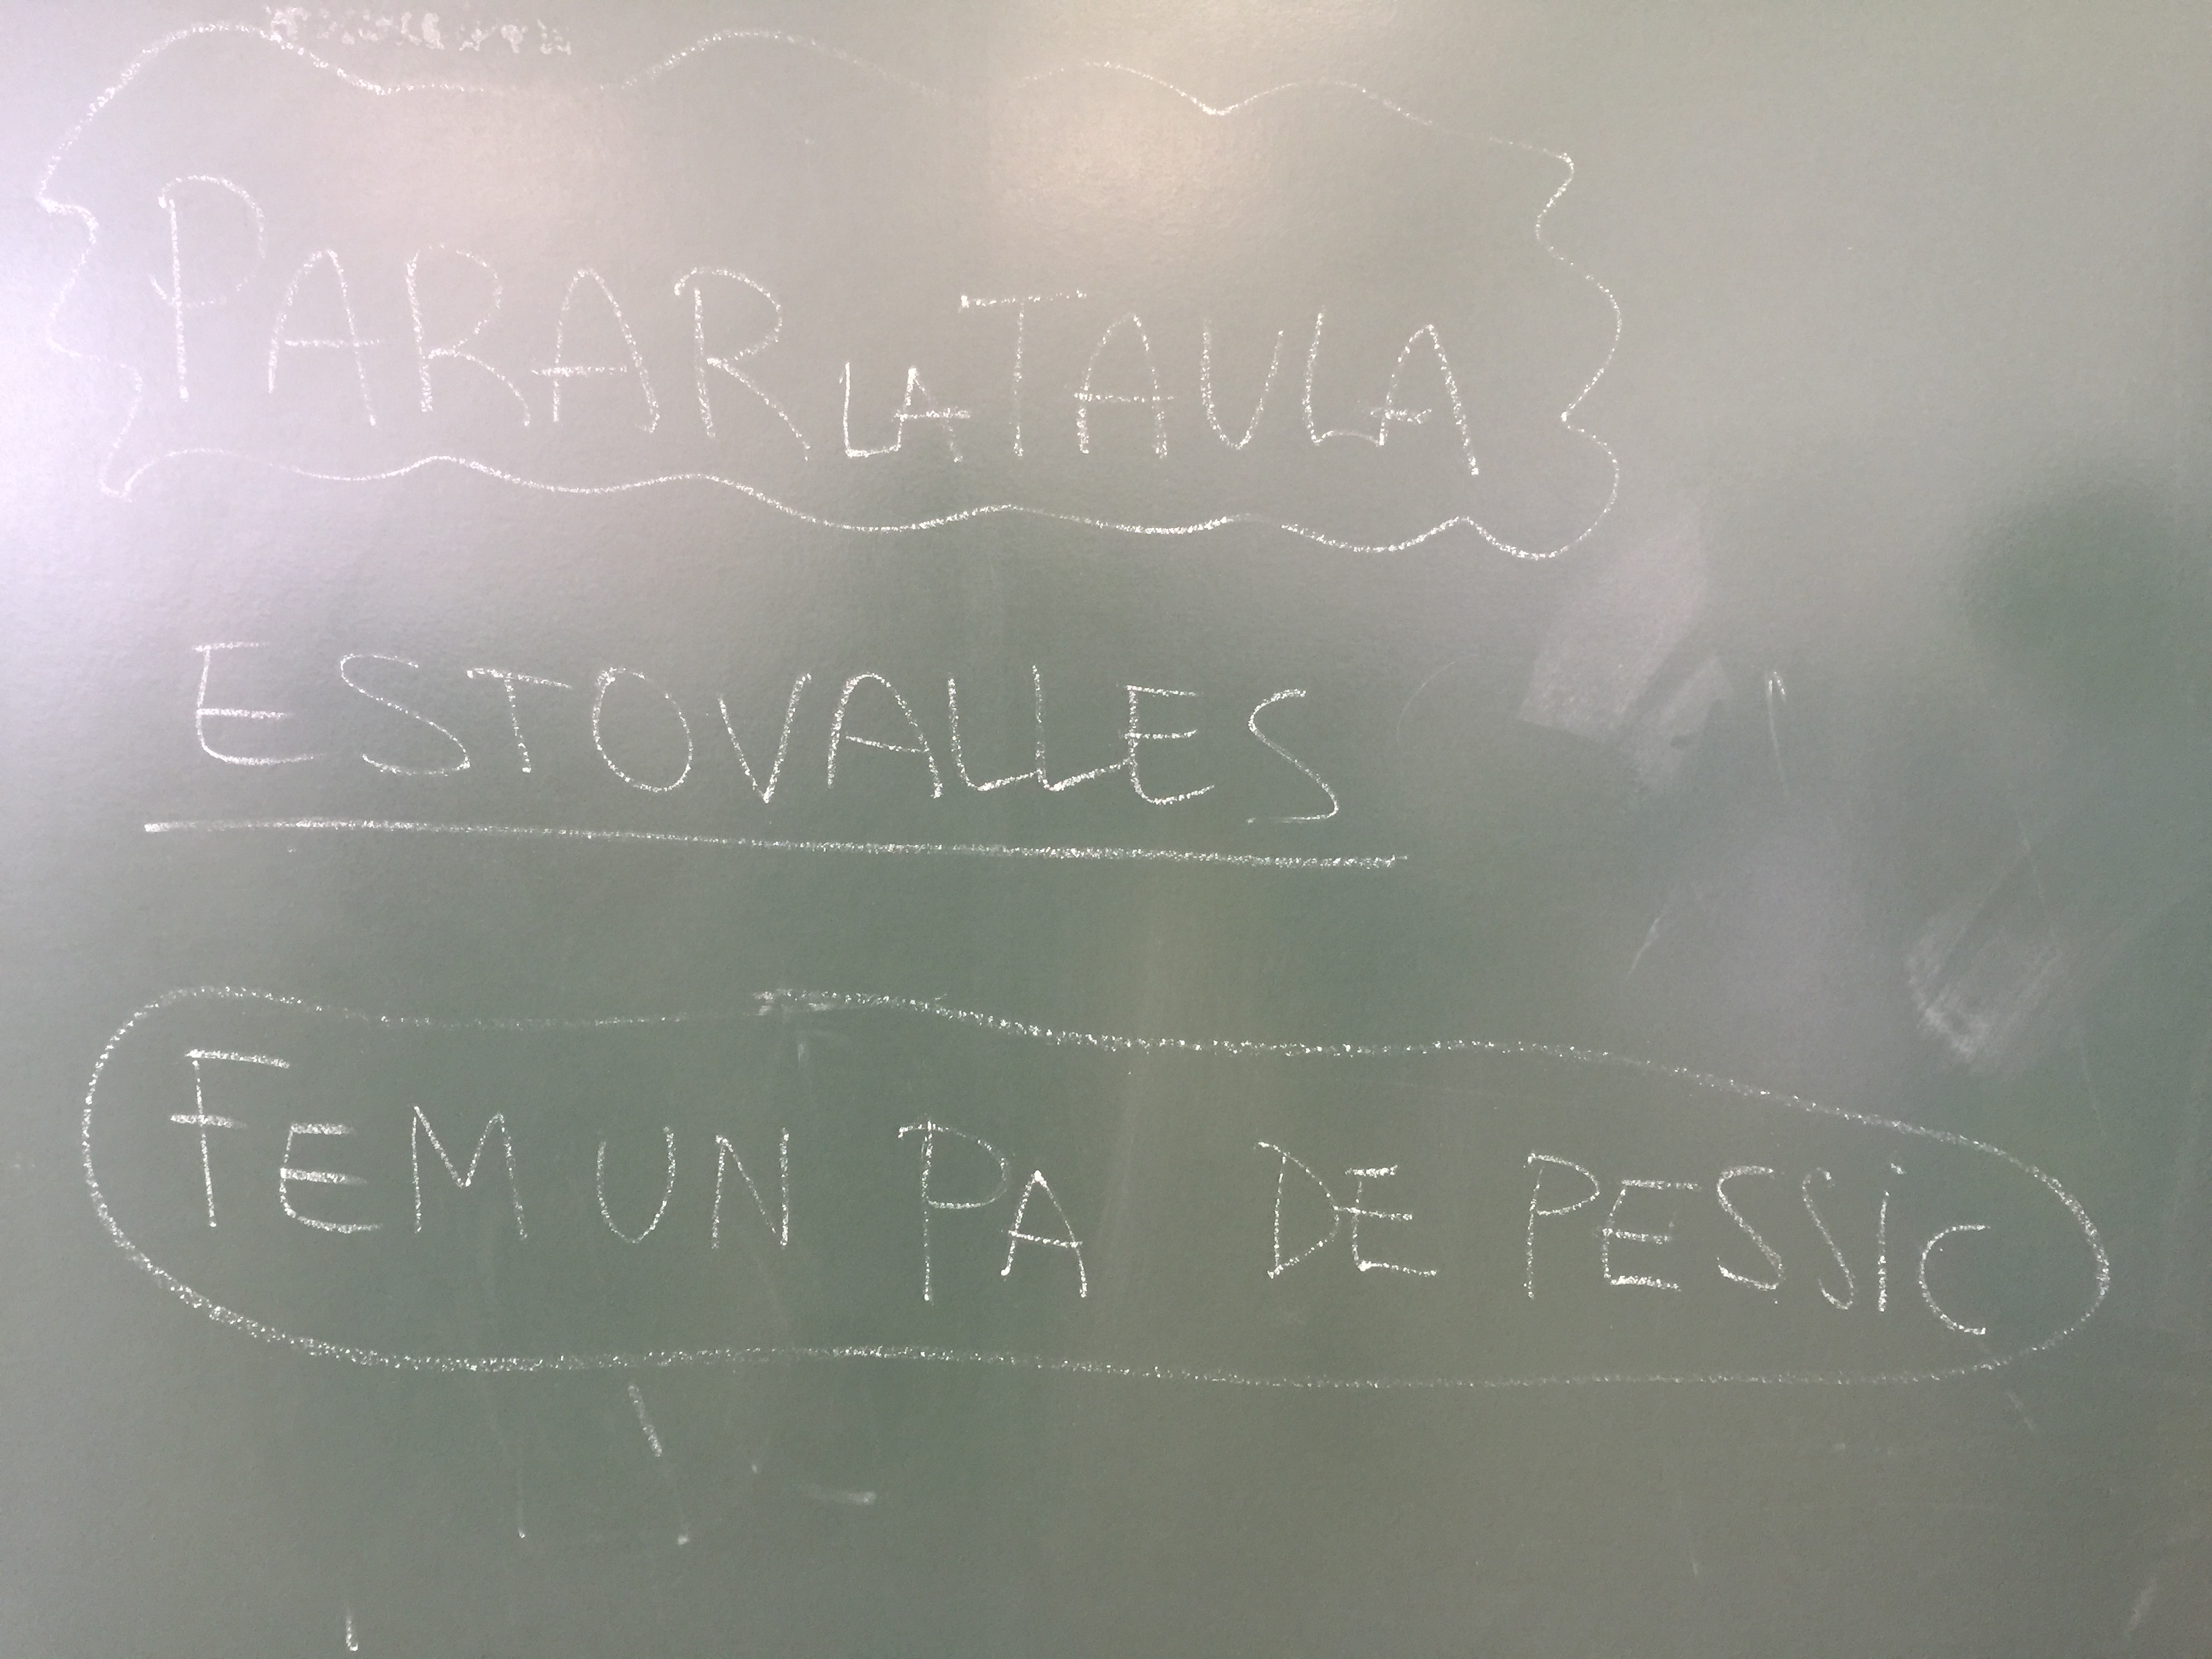 PARAR LA TAULA
ESTOVALLES
FEM UN PA DE PESSIC